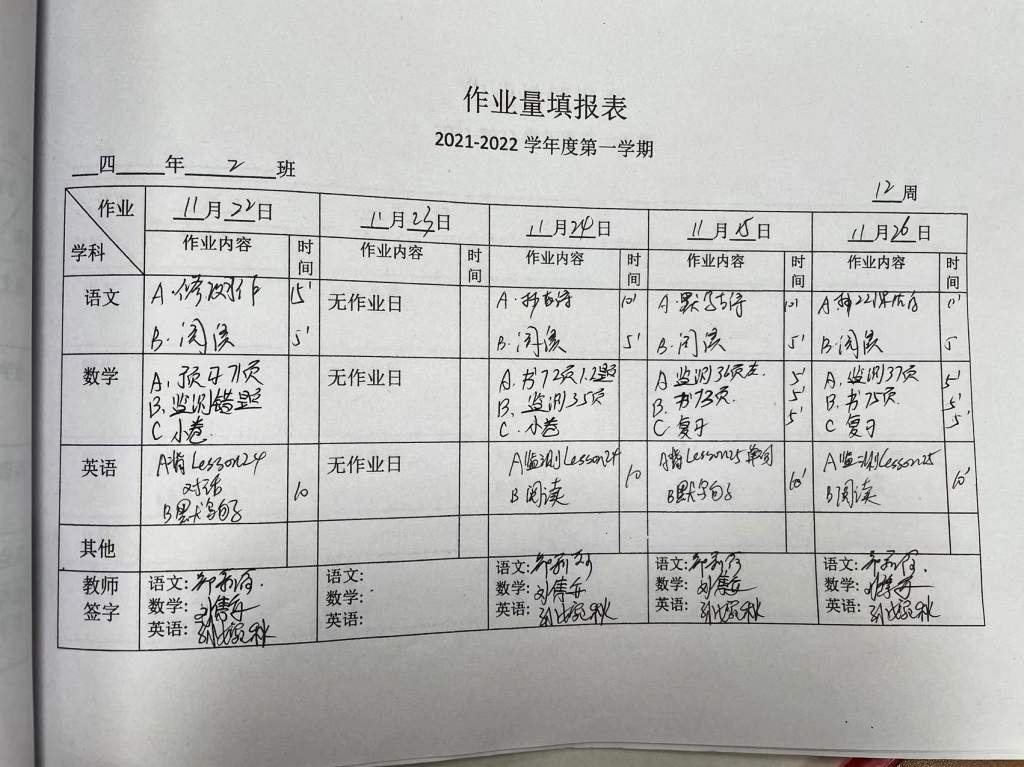 作业量填报表
2021-2022 学年度第一学期
四 年 2 班
12 周
作业
学科
11月22日
11月23日
11月24日
11月25日
11月26日
作业内容 时间
作业内容 时间
作业内容 时间
作业内容 时间
作业内容 时间
语文
A.修改习作 15'
B.阅读 5'
无作业日
A.抄古诗 10'
B.阅读 5'
A.默写古诗 10'
B.阅读 5'
B.阅读 5
数学
A.预习71页
B.监测错题
C 小卷
无作业日
A.书72页1.2题
B.监测35页
C.小卷
A 监测36页左. 5'
B.书73页. 5'
C 复习 5'
A.监测37页 5'
B.书75页. 5'
C 复习 5'
英语
A背Lesson24
对话
B默写句子 10
无作业日
A监测Lesson24
B阅读 10
A背Lesson25单词
B默写句子 10'
A监测Lesson25
B阅读 10'
其他
教师
签字
语文:
数学:
英语:
语文:
数学:
英语:
语文:
数学:
英语:
语文:
数学:
英语:
语文:
数学:
英语: